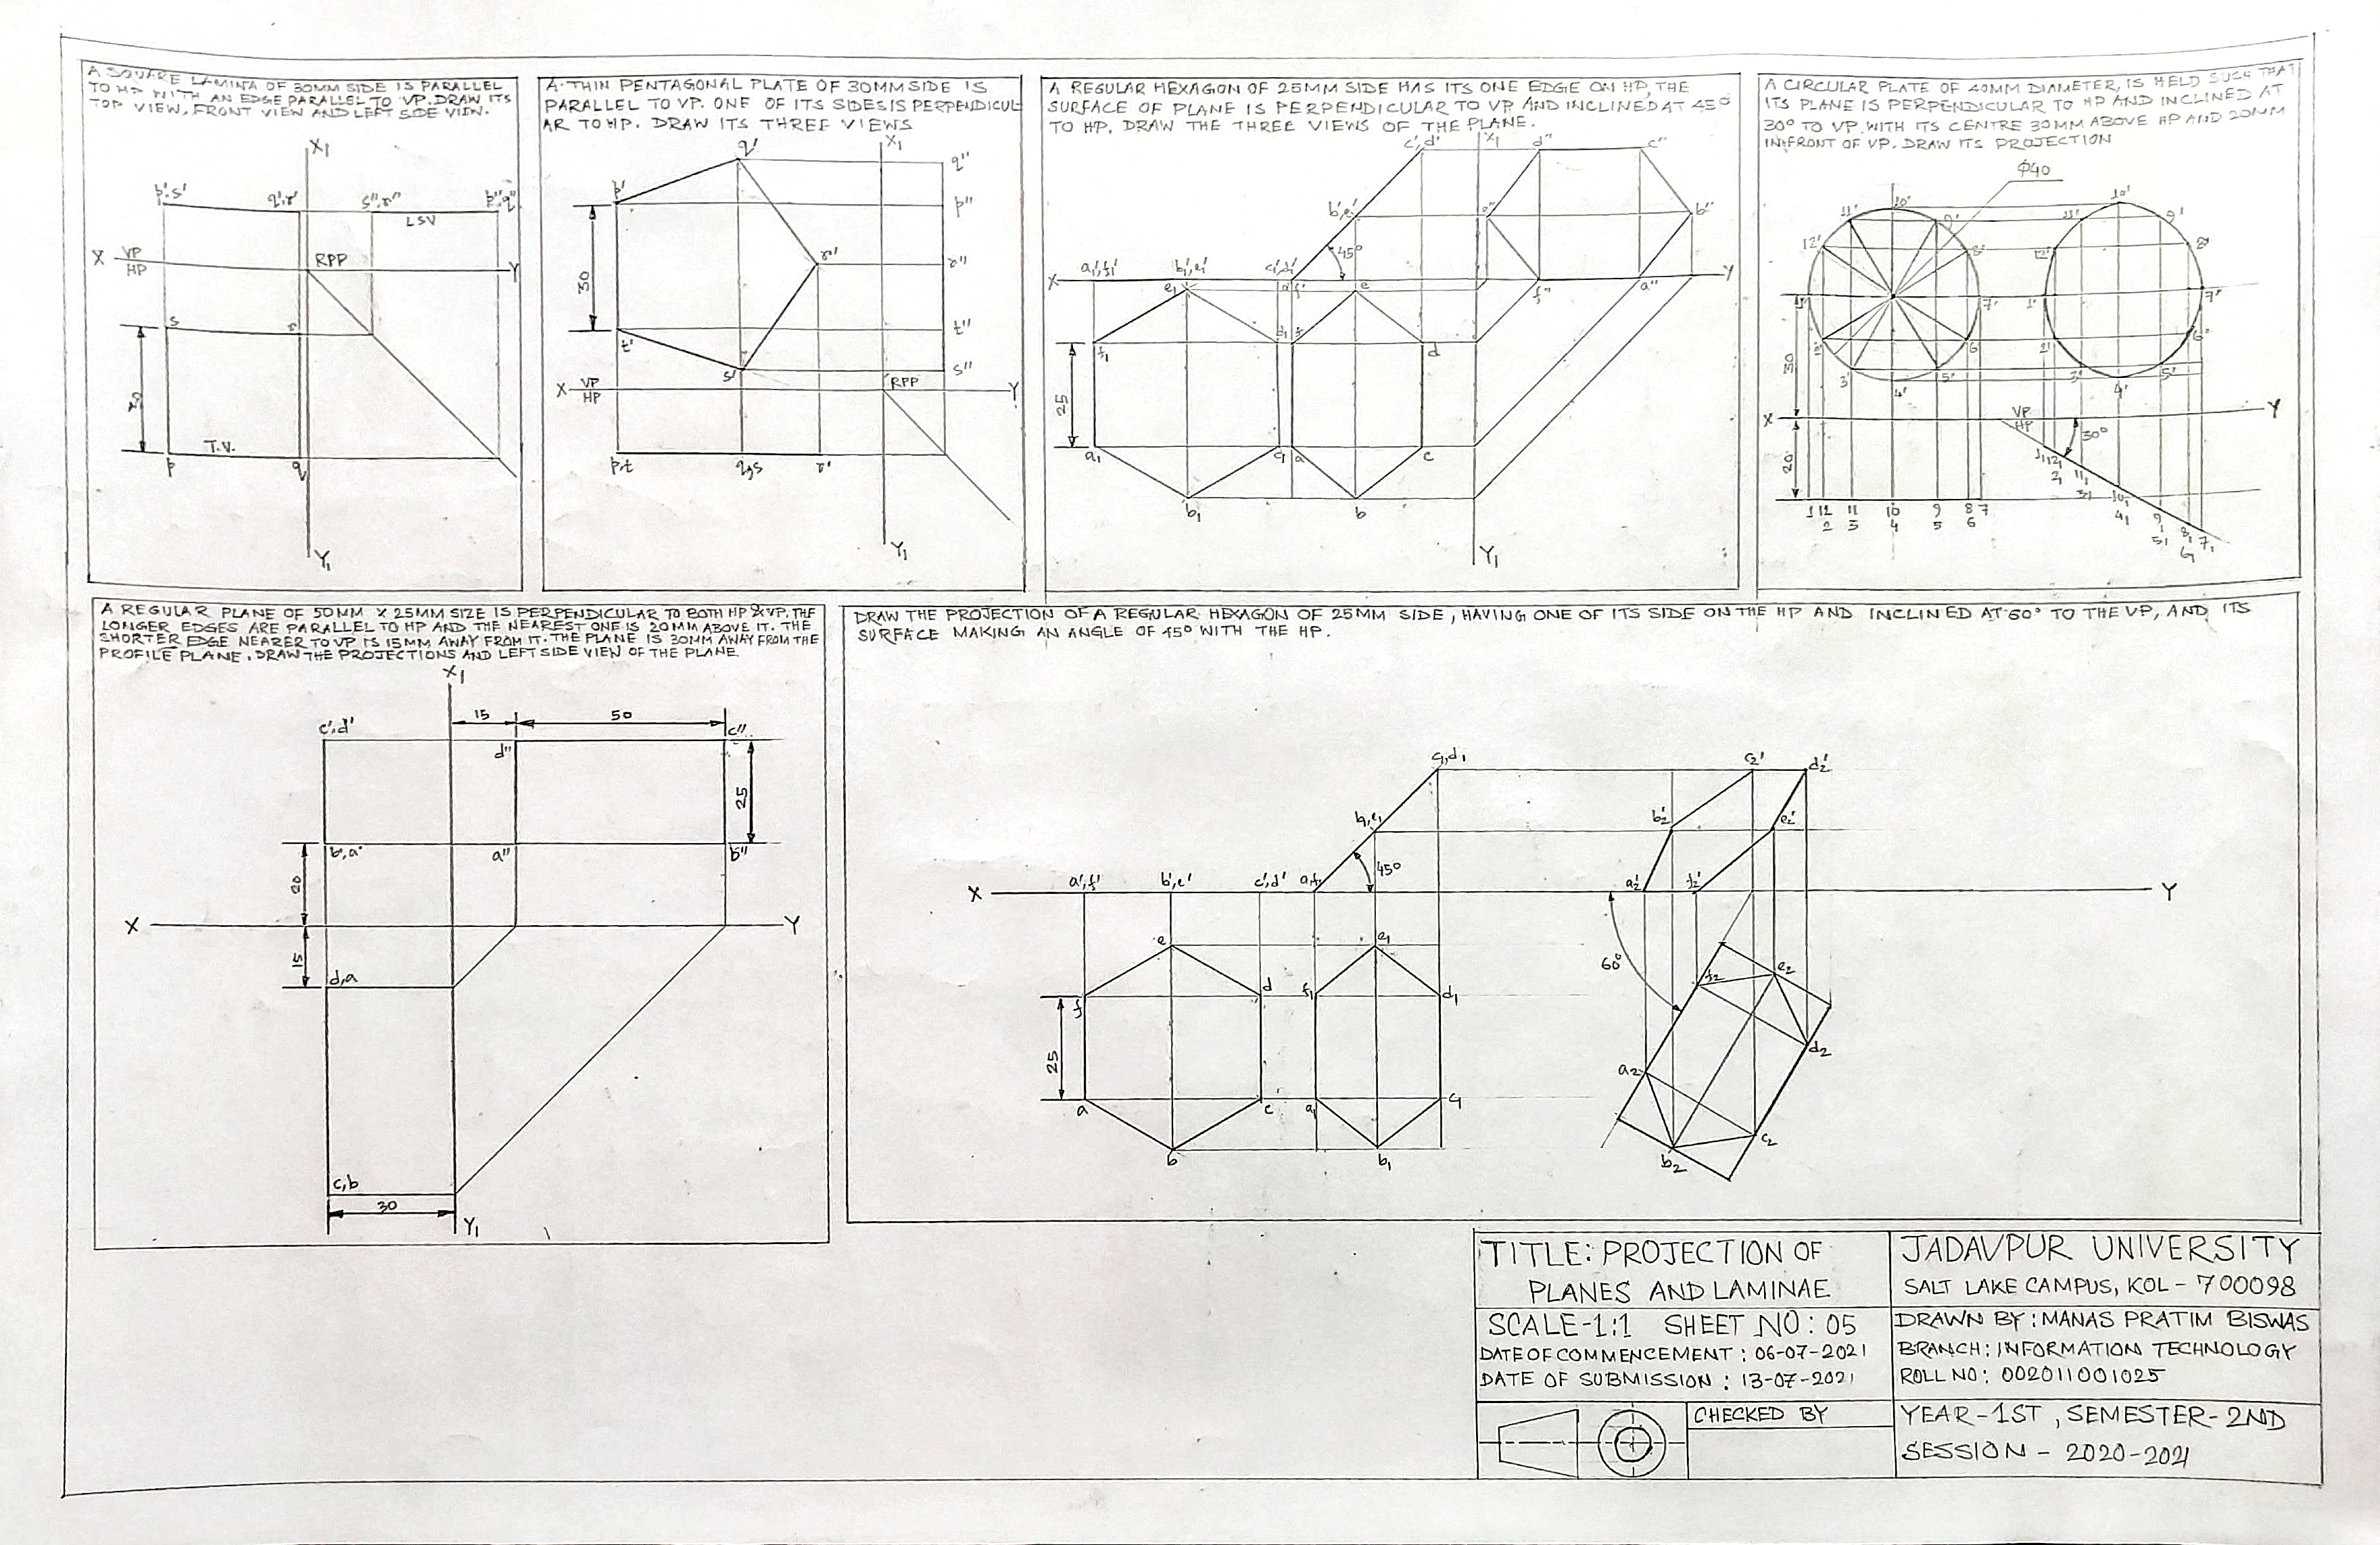 A SQUARE LAMINA OF 30MM SIDE IS PARALLEL
TO HP WITH AN EDGE PARALLEL TO VP. DRAW ITS
TOP VIEW, FRONT VIEW AND LEFT SIDE VIEW.
X1
p's'
q',r'
s",r"
p",q"
LSV
X
VP
HP
RPP
Y
s
r
T.V.
p
q
Y1
A THIN PENTAGONAL PLATE OF 30MM SIDE IS
PARALLEL TO VP. ONE OF ITS SIDES IS PERPENDICUL
AR TO HP. DRAW ITS THREE VIEWS
X1
q'
q"
p'
p"
30
r'
r"
t'
t"
s'
s"
X
VP
HP
RPP
Y
p,t
q,s
r'
Y1
A REGULAR HEXAGON OF 25MM SIDE HAS ITS ONE EDGE ON HP, THE
SURFACE OF PLANE IS PERPENDICULAR TO VP AND INCLINED AT 45°
TO HP. DRAW THE THREE VIEWS OF THE PLANE.
c',d'
X1
d"
c"
b',e'
e"
b"
45°
X
a1',f1'
b1',e1'
c1',d1'
a'f'
f"
a"
Y
e1
e
f1
d1
f
d
25
a1
c1
a
c
b1
b
Y1
A CIRCULAR PLATE OF 40MM DIAMETER, IS HELD SUCH THAT
ITS PLANE IS PERPENDICULAR TO HP AND INCLINED AT
30° TO VP WITH ITS CENTRE 30MM ABOVE HP AND 20MM
IN FRONT OF VP. DRAW ITS PROJECTION
Φ40
11'
10'
9'
10'
11'
9'
12'
8'
12'
8'
1'
7'
1'
7'
2'
6'
2'
6'
3'
4'
5'
3'
4'
5'
30
X
VP
HP
Y
30°
20
1 12 11 10 9 8 7
2 3 4 5 6
11 121 111 101 91 81 71
21 31 41 51 61
A REGULAR PLANE OF 50MM X 25MM SIZE IS PERPENDICULAR TO BOTH HP & VP. THE
LONGER EDGES ARE PARALLEL TO HP AND THE NEAREST ONE IS 20 MM ABOVE IT. THE
SHORTER EDGE NEARER TO VP IS 15MM AWAY FROM IT. THE PLANE IS 30MM AWAY FROM THE
PROFILE PLANE. DRAW THE PROJECTIONS AND LEFT SIDE VIEW OF THE PLANE.
X1
15
50
c',d'
d"
c"
25
b',a'
a"
b"
20
X
Y
15
d,a
c,b
30
Y1
DRAW THE PROJECTION OF A REGULAR HEXAGON OF 25MM SIDE, HAVING ONE OF ITS SIDE ON THE HP AND INCLINED AT 60° TO THE VP, AND ITS
SURFACE MAKING AN ANGLE OF 45° WITH THE HP.
c1,d1
c2'
d2'
b1,e1
b2'
e2'
45°
X
a',f'
b',e'
c',d'
a1f1
a2'
f2'
Y
60°
e
e1
f2
e2
f
d
f1
d1
25
d2
a2
a
c
a1
c1
b
b1
b2
c2
TITLE: PROJECTION OF
PLANES AND LAMINAE
SCALE-1:1 SHEET NO: 05
DATE OF COMMENCEMENT: 06-07-2021
DATE OF SUBMISSION: 13-07-2021
CHECKED BY
JADAVPUR UNIVERSITY
SALT LAKE CAMPUS, KOL - 700098
DRAWN BY: MANAS PRATIM BISWAS
BRANCH: INFORMATION TECHNOLOGY
ROLL NO: 002011001025
YEAR-1ST, SEMESTER-2ND
SESSION - 2020-2021